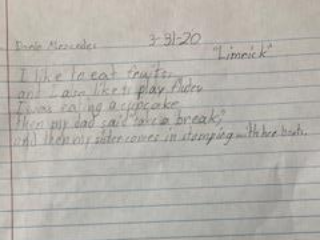 3-31-20
"Limrick"
I like to eat fruits.
and I also like to play
I was eating a cupcake
then my dad said take a break,
and then my sister comes in stomping with her boots.